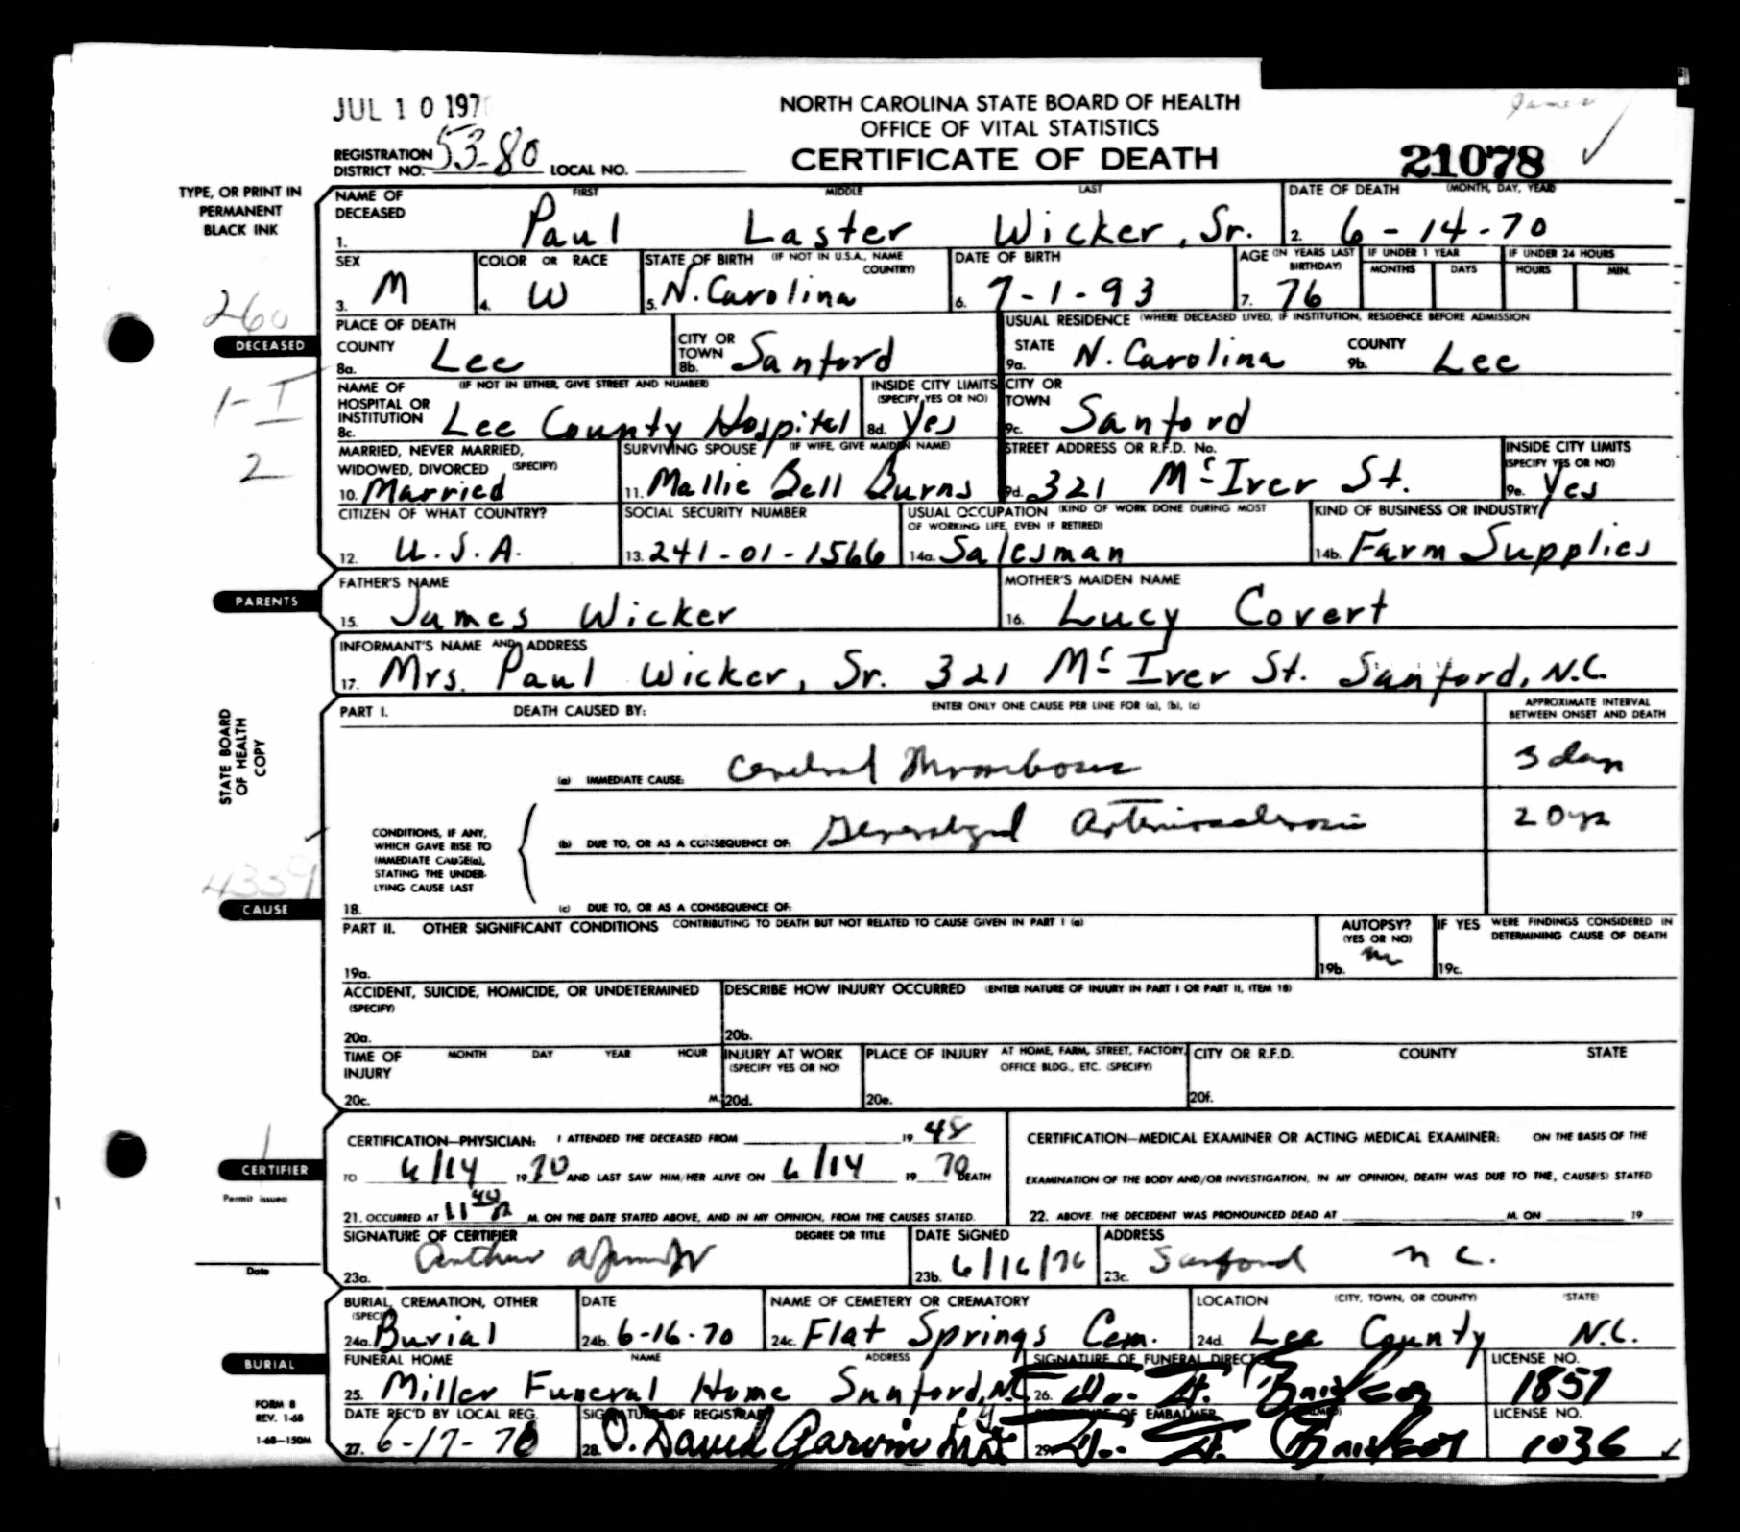 JUL 10 197
NORTH CAROLINA STATE BOARD OF HEALTH
OFFICE OF VITAL STATISTICS
CERTIFICATE OF DEATH
James
21078
REGISTRATION DISTRICT NO. 53-80 LOCAL NO.
TYPE, OR PRINT IN
PERMANENT
BLACK INK
NAME OF DECEASED FIRST MIDDLE LAST DATE OF DEATH (MONTH, DAY, YEAR)
1. Paul Laster Wicker, Sr. 2. 6-14-70
SEX COLOR OR RACE STATE OF BIRTH (IF NOT IN U.S.A., NAME COUNTRY) DATE OF BIRTH AGE (IN YEARS LAST BIRTHDAY) IF UNDER 1 YEAR MONTHS DAYS IF UNDER 24 HOURS HOURS MIN.
3. M 4. W 5. N. Carolina 6. 7-1-93 7. 76
260
DECEASED
1-I
2
PLACE OF DEATH USUAL RESIDENCE (WHERE DECEASED LIVED, IF INSTITUTION, RESIDENCE BEFORE ADMISSION
COUNTY 8a. Lee CITY OR TOWN 8b. Sanford STATE 9a. N. Carolina COUNTY 9b. Lee
NAME OF HOSPITAL OR INSTITUTION (IF NOT IN EITHER, GIVE STREET AND NUMBER) INSIDE CITY LIMITS (SPECIFY YES OR NO) CITY OR TOWN
8c. Lee County Hospital 8d. Yes 9c. Sanford
MARRIED, NEVER MARRIED, WIDOWED, DIVORCED (SPECIFY) SURVIVING SPOUSE (IF WIFE, GIVE MAIDEN NAME) STREET ADDRESS OR R.F.D. No. INSIDE CITY LIMITS (SPECIFY YES OR NO)
10. Married 11. Mallie Bell Burns 9d. 321 McIver St. 9e. Yes
CITIZEN OF WHAT COUNTRY? SOCIAL SECURITY NUMBER USUAL OCCUPATION (KIND OF WORK DONE DURING MOST OF WORKING LIFE, EVEN IF RETIRED) KIND OF BUSINESS OR INDUSTRY
12. U.S.A. 13. 241-01-1566 14a. Salesman 14b. Farm Supplies
PARENTS
FATHER'S NAME MOTHER'S MAIDEN NAME
15. James Wicker 16. Lucy Covert
INFORMANT'S NAME AND ADDRESS
17. Mrs. Paul Wicker, Sr. 321 McIver St. Sanford, N.C.
STATE BOARD
OF HEALTH
COPY
PART I. DEATH CAUSED BY: ENTER ONLY ONE CAUSE PER LINE FOR (a), (b), (c) APPROXIMATE INTERVAL BETWEEN ONSET AND DEATH
(a) IMMEDIATE CAUSE: Cerebral Thrombosis 3 days
CONDITIONS, IF ANY,
WHICH GAVE RISE TO
IMMEDIATE CAUSE(a),
STATING THE UNDER-
LYING CAUSE LAST
(b) DUE TO, OR AS A CONSEQUENCE OF: Generalized Arteriosclerosis 20 yrs
4339
CAUSE
18. (c) DUE TO, OR AS A CONSEQUENCE OF:
PART II. OTHER SIGNIFICANT CONDITIONS CONTRIBUTING TO DEATH BUT NOT RELATED TO CAUSE GIVEN IN PART I (a) AUTOPSY? (YES OR NO) IF YES WERE FINDINGS CONSIDERED IN DETERMINING CAUSE OF DEATH
19a. 19b. no 19c.
ACCIDENT, SUICIDE, HOMICIDE, OR UNDETERMINED (SPECIFY) DESCRIBE HOW INJURY OCCURRED (ENTER NATURE OF INJURY IN PART I OR PART II, ITEM 18)
20a. 20b.
TIME OF INJURY MONTH DAY YEAR HOUR INJURY AT WORK (SPECIFY YES OR NO) PLACE OF INJURY AT HOME, FARM, STREET, FACTORY, OFFICE BLDG., ETC. (SPECIFY) CITY OR R.F.D. COUNTY STATE
20c. M. 20d. 20e. 20f.
CERTIFIER
Permit issued
Date
CERTIFICATION—PHYSICIAN: I ATTENDED THE DECEASED FROM 19 48
TO 6/14 1970 AND LAST SAW HIM/HER ALIVE ON 6/14 19 70 DEATH
21. OCCURRED AT 11 40 P M. ON THE DATE STATED ABOVE, AND IN MY OPINION, FROM THE CAUSES STATED.
CERTIFICATION—MEDICAL EXAMINER OR ACTING MEDICAL EXAMINER: ON THE BASIS OF THE
EXAMINATION OF THE BODY AND/OR INVESTIGATION, IN MY OPINION, DEATH WAS DUE TO THE, CAUSE(S) STATED
22. ABOVE. THE DECEDENT WAS PRONOUNCED DEAD AT M. ON 19
SIGNATURE OF CERTIFIER DEGREE OR TITLE DATE SIGNED ADDRESS
23a. Arthur 23b. 6/16/70 23c. Sanford N C.
BURIAL, CREMATION, OTHER (SPECIFY) DATE NAME OF CEMETERY OR CREMATORY LOCATION (CITY, TOWN, OR COUNTY) (STATE)
24a. Burial 24b. 6-16-70 24c. Flat Springs Cem. 24d. Lee County N.C.
BURIAL
FUNERAL HOME NAME ADDRESS SIGNATURE OF FUNERAL DIRECTOR LICENSE NO.
25. Miller Funeral Home Sanford, N.C. 26. 1857
FORM 8
REV. 1-68
1-68—150M
DATE REC'D BY LOCAL REG. SIGNATURE OF REGISTRAR SIGNATURE OF EMBALMER LICENSE NO.
27. 6-17-70 28. O. David Garvin 29. 1036